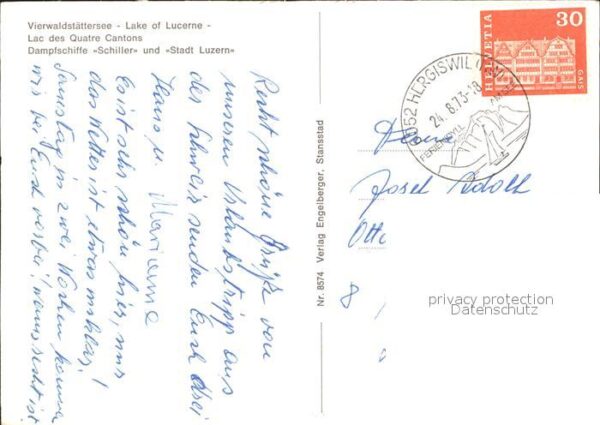 Vierwaldstättersee - Lake of Lucerne -
Lac des Quatre Cantons
Dampfschiffe »Schiller« und »Stadt Luzern«
Recht schöne Grüße von
unserem Urlaubstripp aus
der Schweiz senden Euch
Hans u. Marianne
Es ist sehr schön hier, nur
das Wetter ist etwas
Samstag in zwei Wochen kommen
wir bei Euch vorbei!
Nr. 8574 Verlag Engelberger, Stansstad
HELVETIA
30
GAIS
6052 HERGISWIL (NW)
24.8.73-18
Josef Adolf
Otto
8
privacy protection
Datenschutz